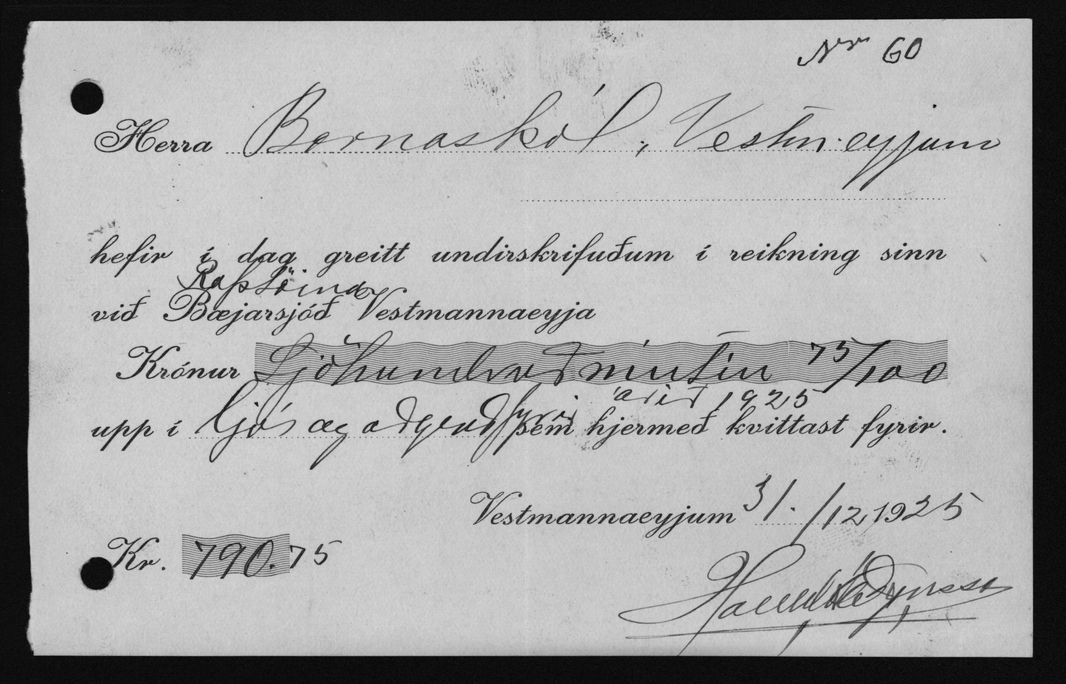 Nr 60
Herra Barnaskól, Vestm.eyjum
hefir í dag greitt undirskrifuðum í reikning sinn
við Bæjarsjóð Vestmannaeyja
Krónur Sjöhundruð níutíu 75/100
árið 1925
upp í ljós og aðgerð fyrir sem hjermeð kvittast fyrir.
Vestmannaeyjum 31./12 1925
Kr. 790.75